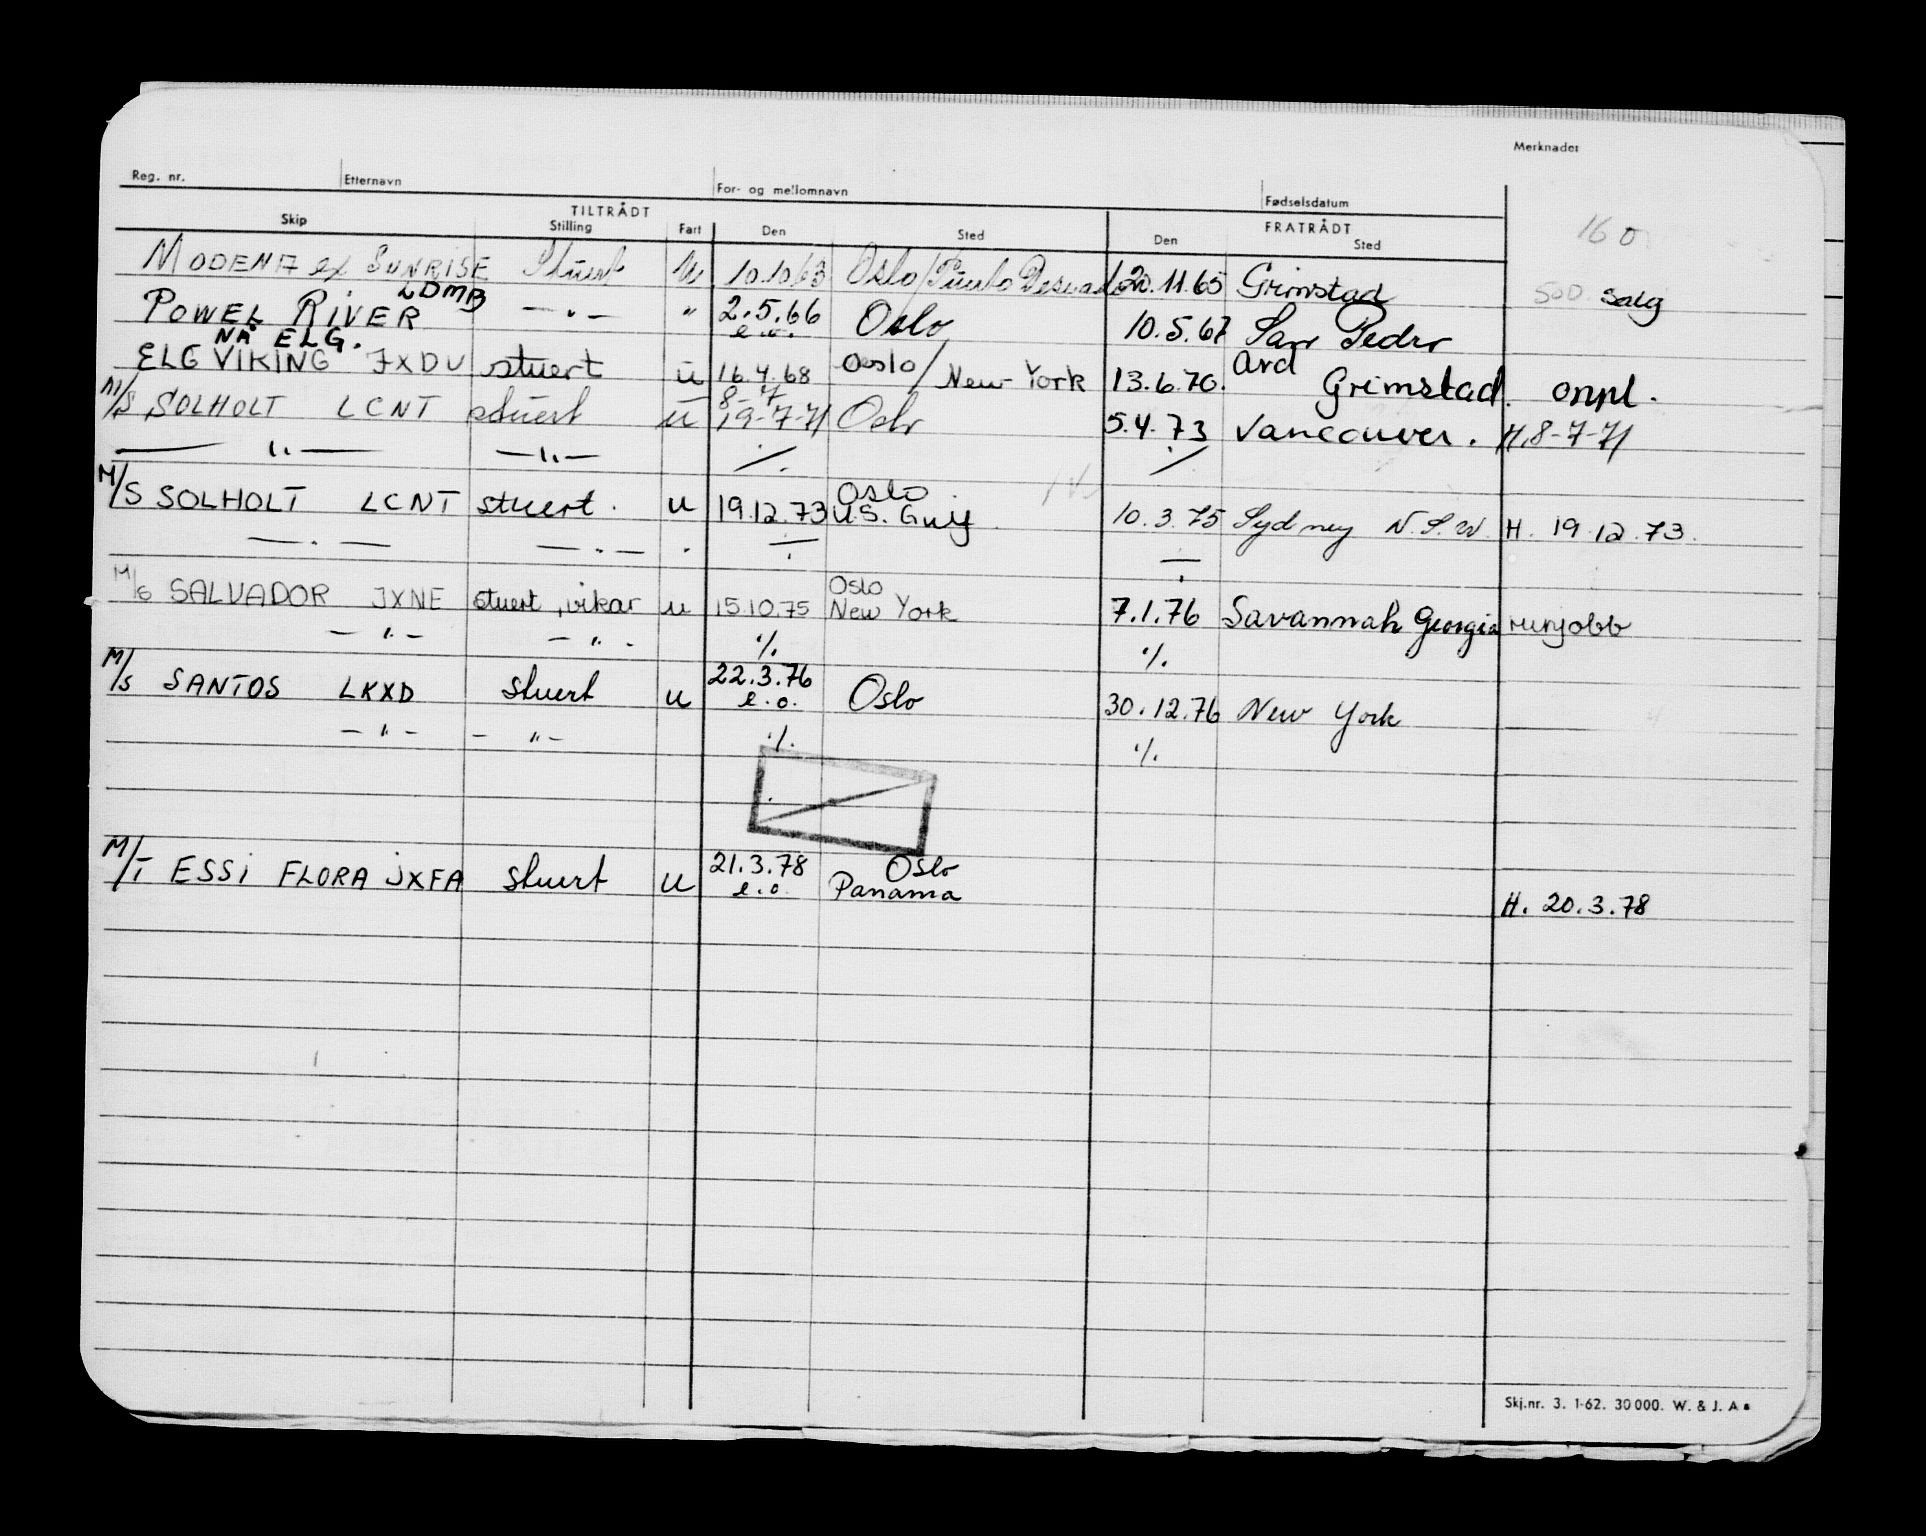 Merknader
Reg. nr. Etternavn For- og mellomnavn Fødselsdatum
TILTRÅDT FRATRÅDT
Skip Stilling Fart Den Sted Den Sted
160
MODENA ex SUNRISE Stuert u 10.10.63 Oslo/Punto 20.11.65 Grimstad 500 salg
LDMB
POWEL RIVER —〃— 〃 2.5.66 e.o. Oslo 10.5.67 San Pedro
NÅ ELG.
ELG VIKING JXDU stuert u 16.4.68 Oslo/New York 13.6.70. Arendal Grimstad. onpl.
8-7
M/S SOLHOLT LCNT stuert u 19-7-71 Oslo 5.4.73 Vancouver. H. 8-7-71
—〃— —〃— ⁒ ⁒
M/S SOLHOLT LCNT stuert. u 19.12.73 Oslo U.S. Gulf 10.3.75 Sydney N.S.W. H. 19.12.73.
—〃— —〃— 〃 ⁒ ⁒
M/S SALVADOR JXNE stuert, vikar u 15.10.75 Oslo New York 7.1.76 Savannah Georgia runjobb
—〃— —〃— ⁒ ⁒
M/S SANTOS LKXD stuert u 22.3.76 e.o. Oslo 30.12.76 New York
—〃— —〃— ⁒ ⁒
M/T ESSI FLORA JXFA stuert u 21.3.78 e.o. Oslo Panama
H. 20.3.78
Skj.nr. 3. 1-62. 30000. W. & J. A